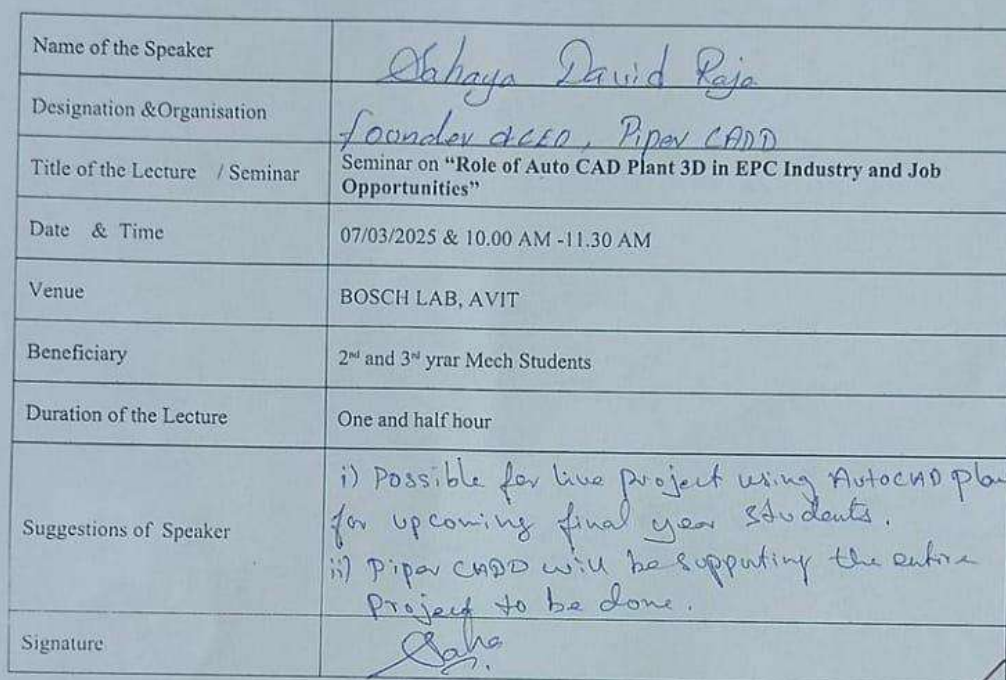 Name of the Speaker
Sahaya David Raja
Designation &Organisation
founder & CEO, Piper CADD
Title of the Lecture / Seminar
Seminar on “Role of Auto CAD Plant 3D in EPC Industry and Job
Opportunities”
Date & Time
07/03/2025 & 10.00 AM -11.30 AM
Venue
BOSCH LAB, AVIT
Beneficiary
2nd and 3rd yrar Mech Students
Duration of the Lecture
One and half hour
Suggestions of Speaker
i) Possible for live project using AutoCAD plan
for upcoming final year students.
ii) Piper CADD will be supputing the entire
project to be done.
Signature
Saha